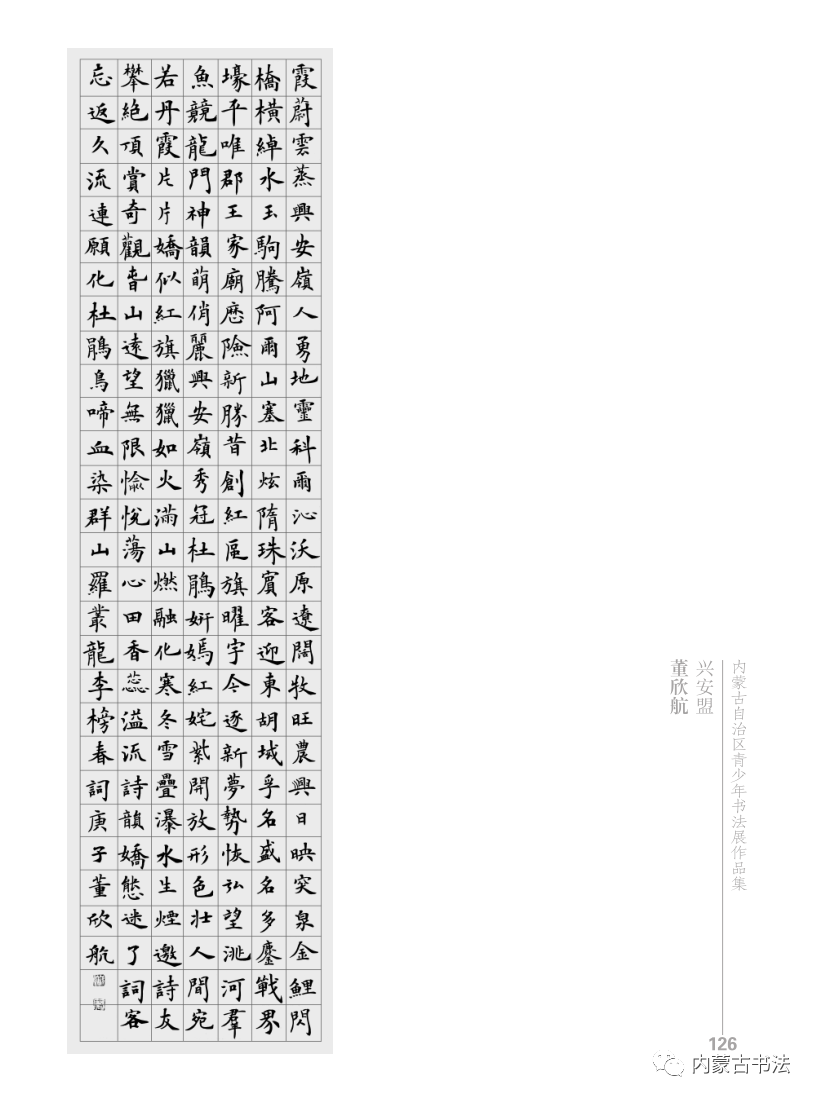 霞蔚雲蒸興安嶺人勇地靈科爾沁沃原遼闊牧旺農興日映突泉金鯉閃
橋橫綽水玉駒騰阿爾山塞北炫隋珠賓客迎東胡域孚名盛名多鏖戰界
壕平唯郡王家廟歷險新勝昔創紅區旗曜宇今逐新夢勢恢弘望洮河羣
魚競龍門神韻萌俏麗興安嶺秀冠杜鵑妍嫣紅姹紫開放形色壯人間宛
若丹霞片片嬌似紅旗獵獵如火滿山燃融化寒冬雪疊瀑水生煙邀詩友
攀絕頂賞奇觀旾山遠望無限愉悅蕩心田香蕊溢流詩韻嬌態迷了詞客
忘返久流連願化杜鵑鳥啼血染群山羅叢龍李榜春詞庚子董欣航
内蒙古自治区青少年书法展作品集
兴安盟
董欣航
126
内蒙古书法